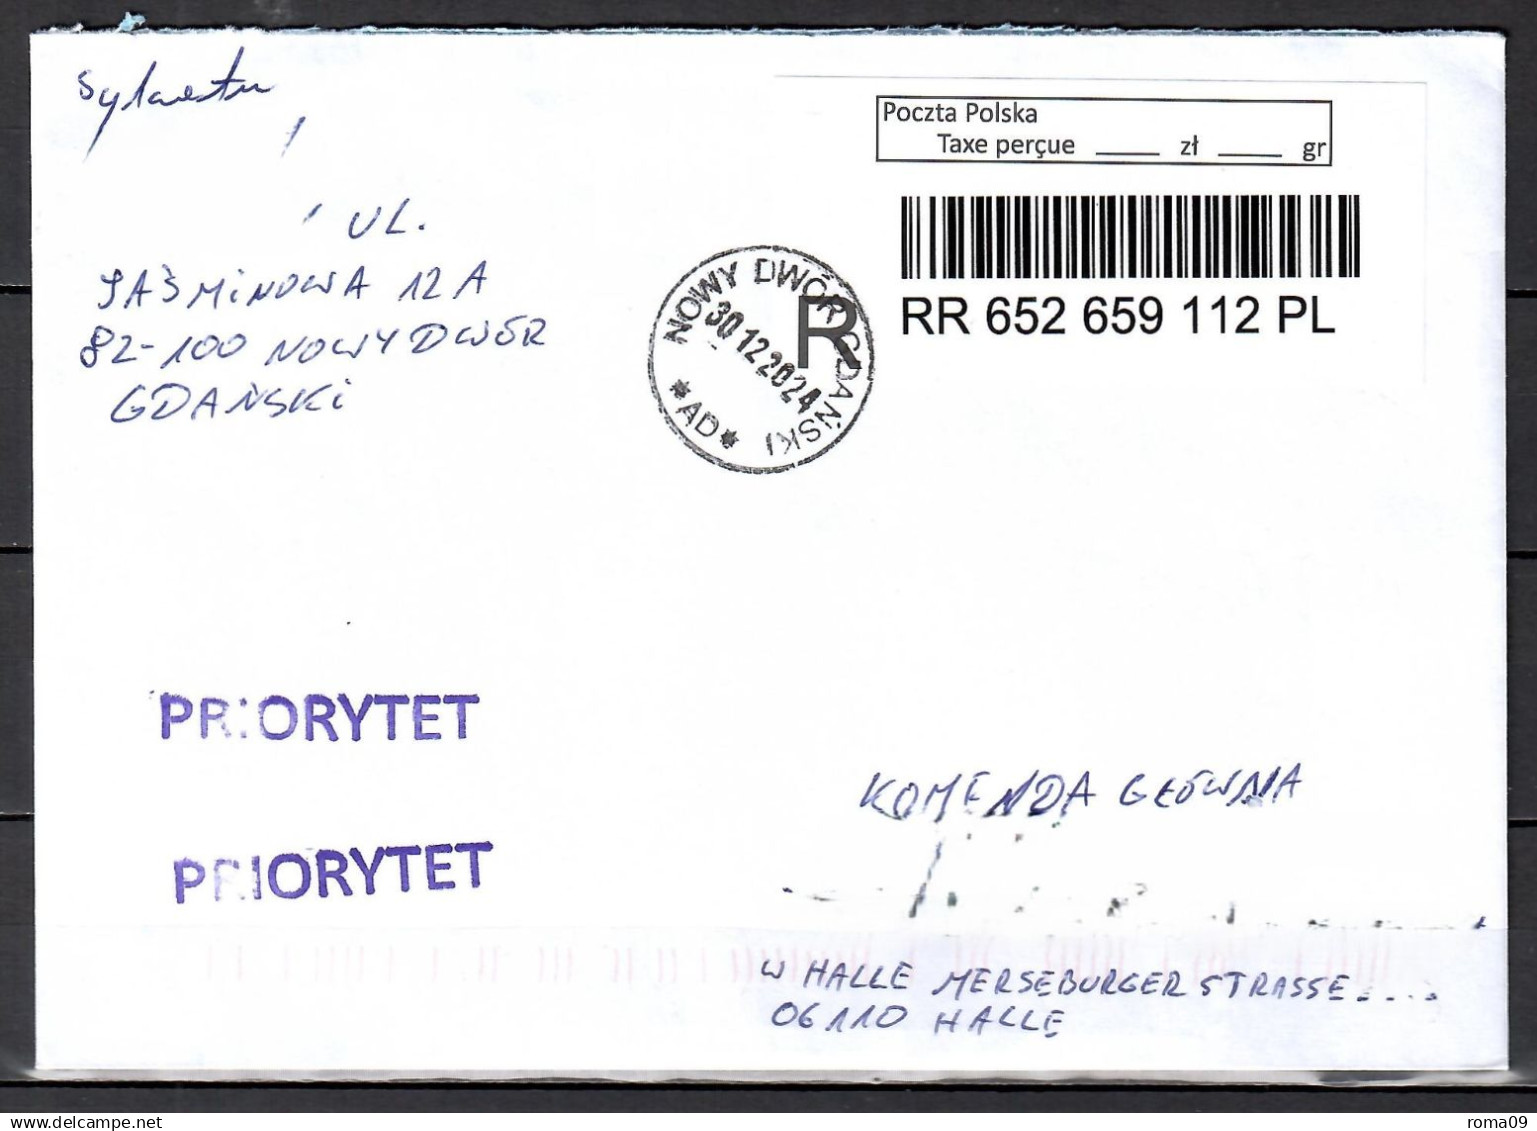 Sylwester
UL.
JAŚMINOWA 12 A
82-100 NOWY DWÓR
GDAŃSKI
Poczta Polska
Taxe perçue _____ zł _____ gr
RR 652 659 112 PL
R
NOWY DWÓR GDAŃSKI
30 12 2024
*AD*
PRIORYTET
PRIORYTET
KOMENDA GŁÓWNA
W HALLE MERSEBURGER STRASSE....
06110 HALLE
roma09